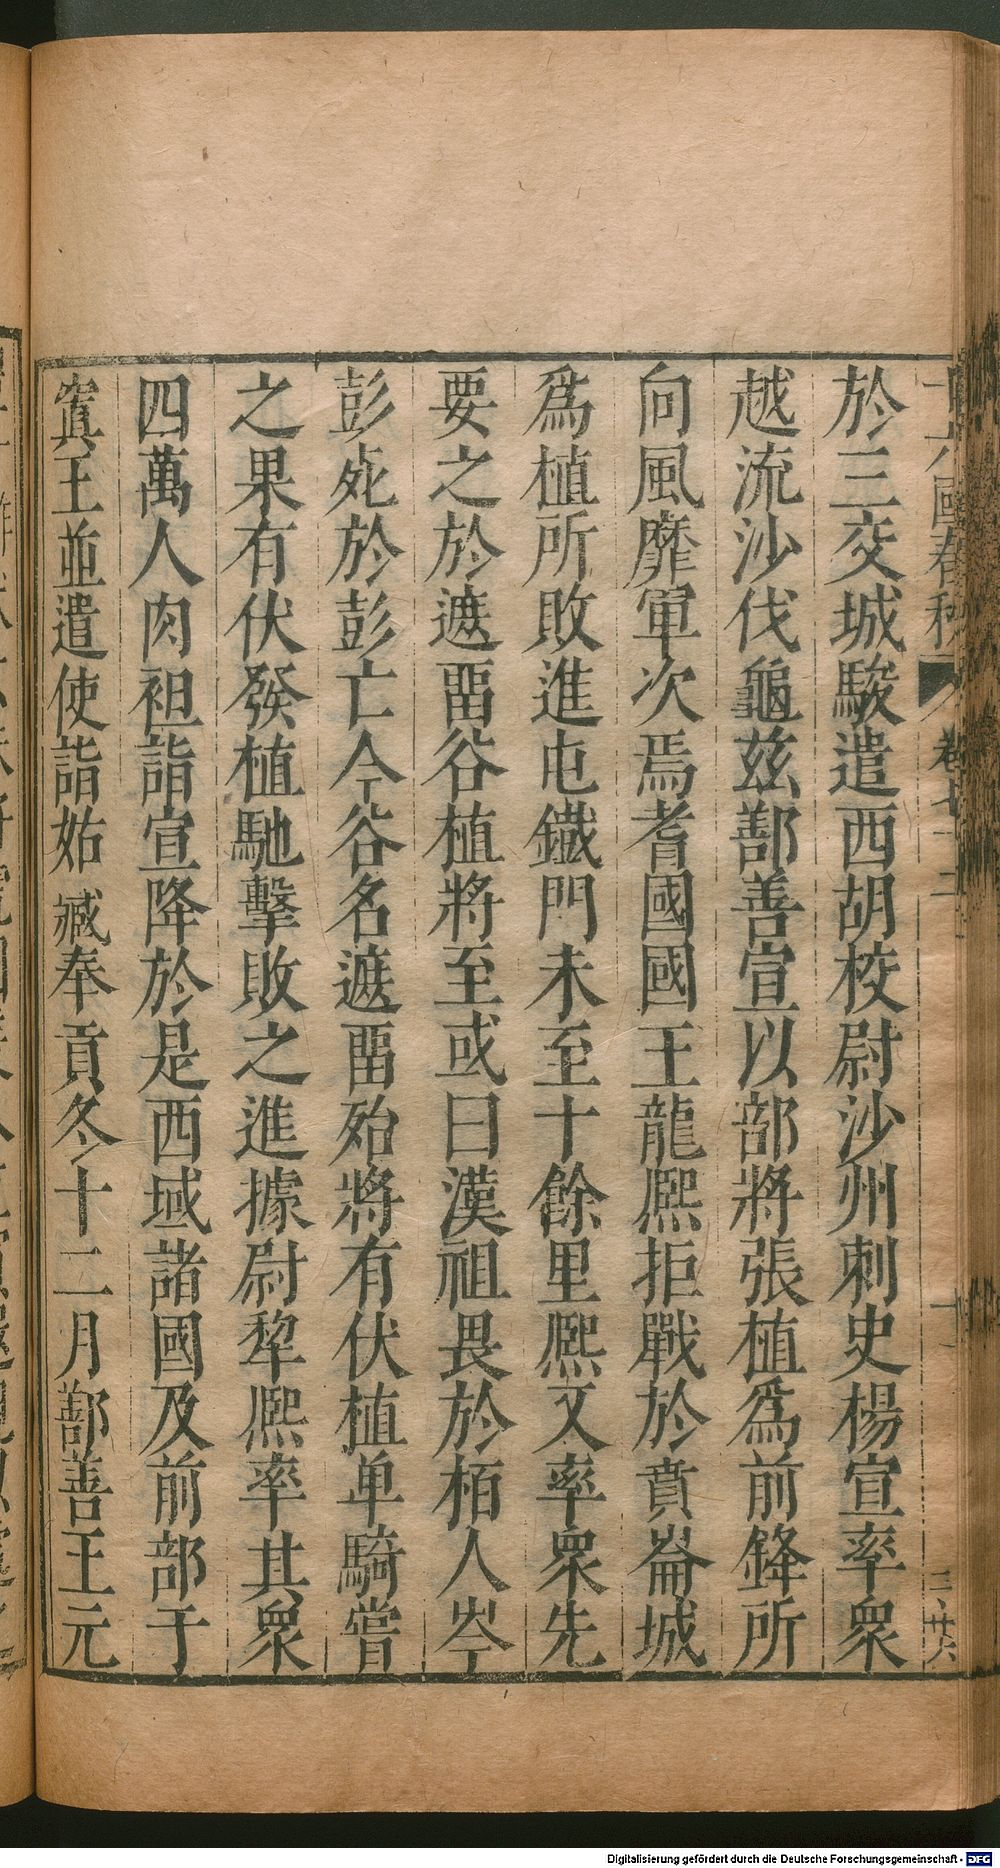 十六國春秋 卷七十二
於三交城駿遣西胡校尉沙州刺史楊宣率衆
越流沙伐龜茲鄯善宣以部將張植爲前鋒所
向風靡軍次焉耆國國王龍熙拒戰於賁崙城
爲植所敗進屯鐵門未至十餘里熙又率衆先
要之於遮畱谷植將至或曰漢祖畏於栢人岑
彭死於彭亡今谷名遮畱殆將有伏植单騎嘗
之果有伏發植馳擊敗之進據尉犂熙率其衆
四萬人肉袒詣宣降於是西域諸國及前部于
窴王並遣使詣姑臧奉貢冬十二月鄯善王元
Digitalisierung gefördert durch die Deutsche Forschungsgemeinschaft - DFG